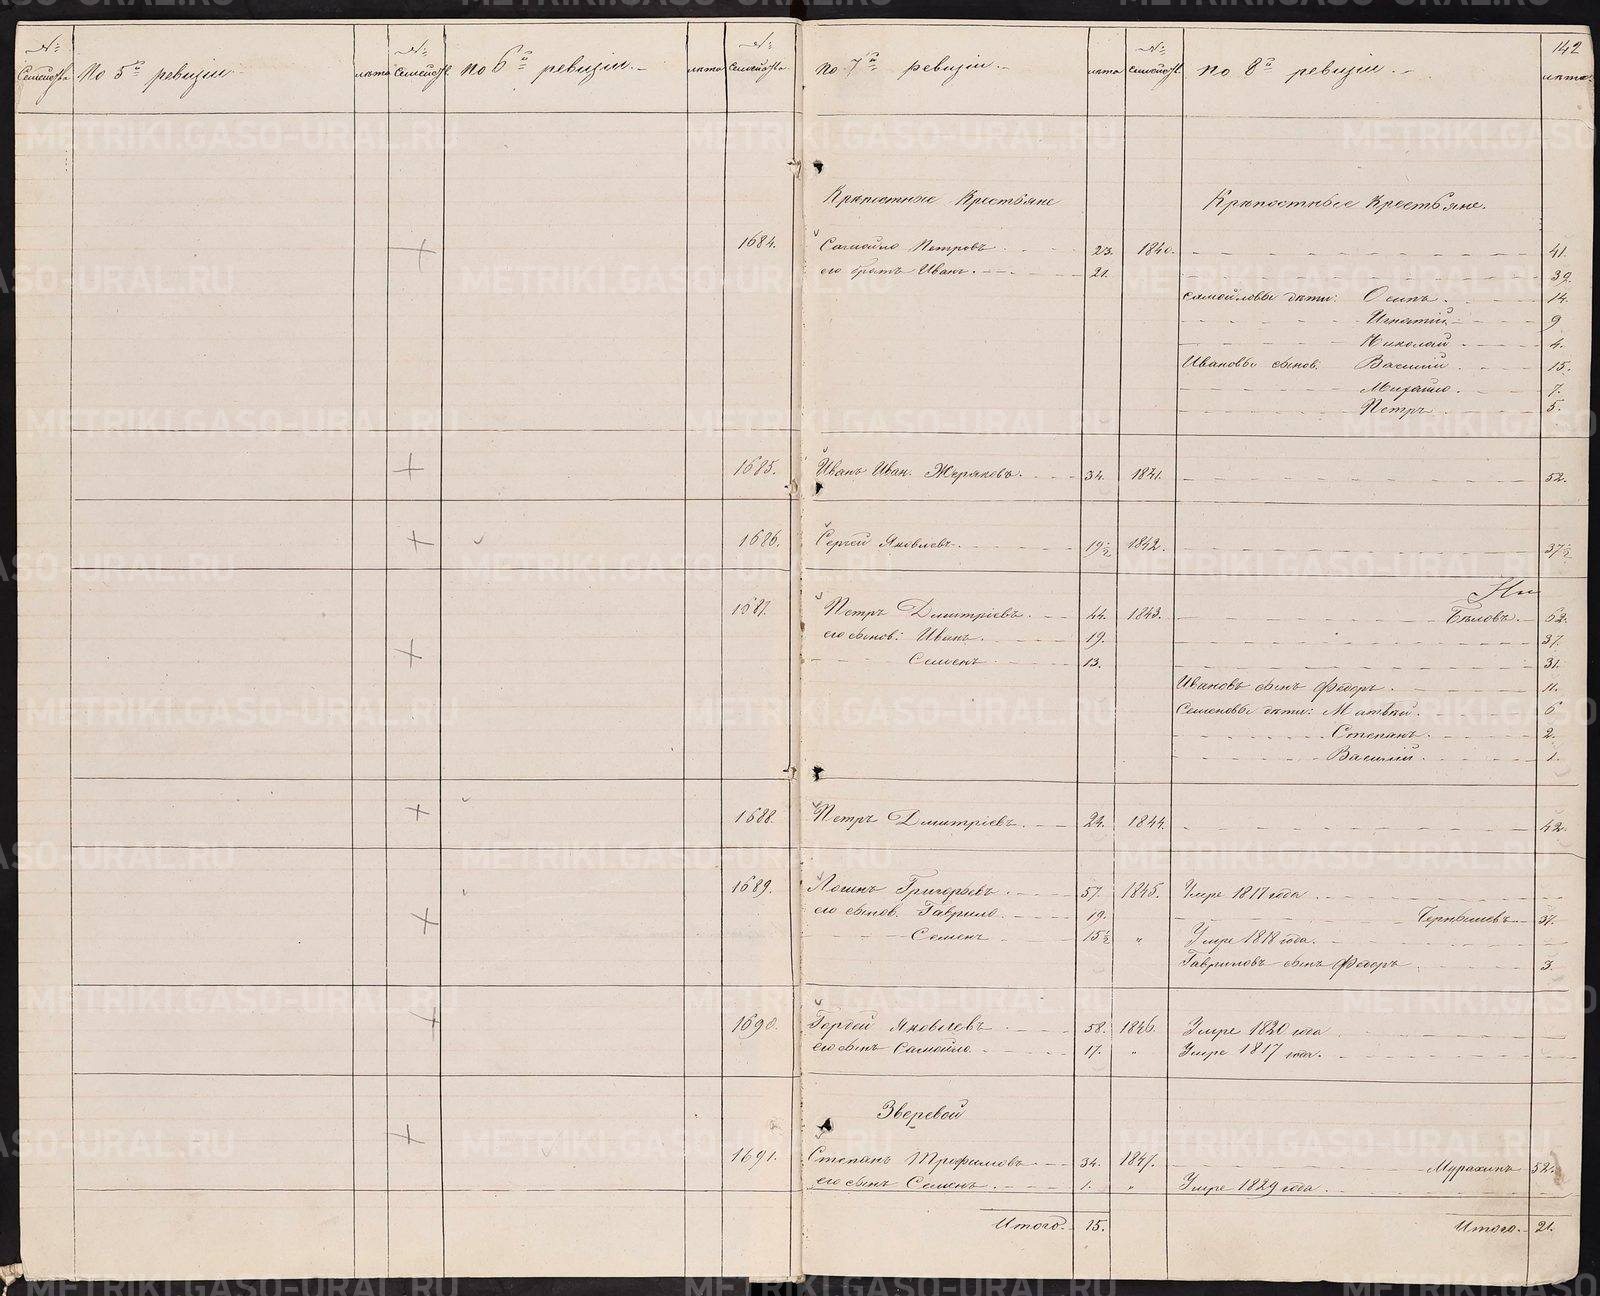 142
№ Семейства По 5й ревизіи лѣта № Семейств. По 6й ревизіи лѣта № Семейства По 7й ревизіи лѣта № Семейств. По 8й ревизіи лѣта
Крѣпостные Крестьяне Крѣпостные Крестьяне.
1684. Самойло Петровъ 23. 1840. 41.
его братъ Иванъ. 21. 39.
Самойловы дѣти: Осипъ. 14.
Игнатій. 9
Николай 4.
Ивановы сынов: Василій 15.
Михайло. 7.
Петръ 5.
1685. Иванъ Иван. Жеряковъ. 34. 1841. 52.
1686. Сергей Яковлевъ. 19½ 1842. 37½
1687. Петръ Дмитріевъ. 44. 1843. Бѣловъ. 62.
его сынов: Иванъ. 19. 37.
Семенъ 13. 31.
Ивановъ сынъ Федоръ. 11.
Семеновы дѣти: Матвѣй. 6
Степанъ. 2.
Василій 1.
1688. Петръ Дмитріевъ. 24. 1844. 42.
1689. Логинъ Григорьевъ 57. 1845. Умре 1817 года
его сынов. Гаврило. 19. Чернышевъ 37.
Семенъ 15½ " Умре 1818 года.
Гавриловъ сынъ Федоръ 3.
1690. Гордей Яковлевъ 58. 1846. Умре 1820 года
его сынъ Самойло. 17. " Умре 1817 года.
Зверевой
1691. Степанъ Трофимовъ 34. 1847. Мурахинъ 52.
его сынъ Семенъ. 1. " Умре 1829 года.
Итого. 15. Итого. 21.
METRIKI.GASO-URAL.RU